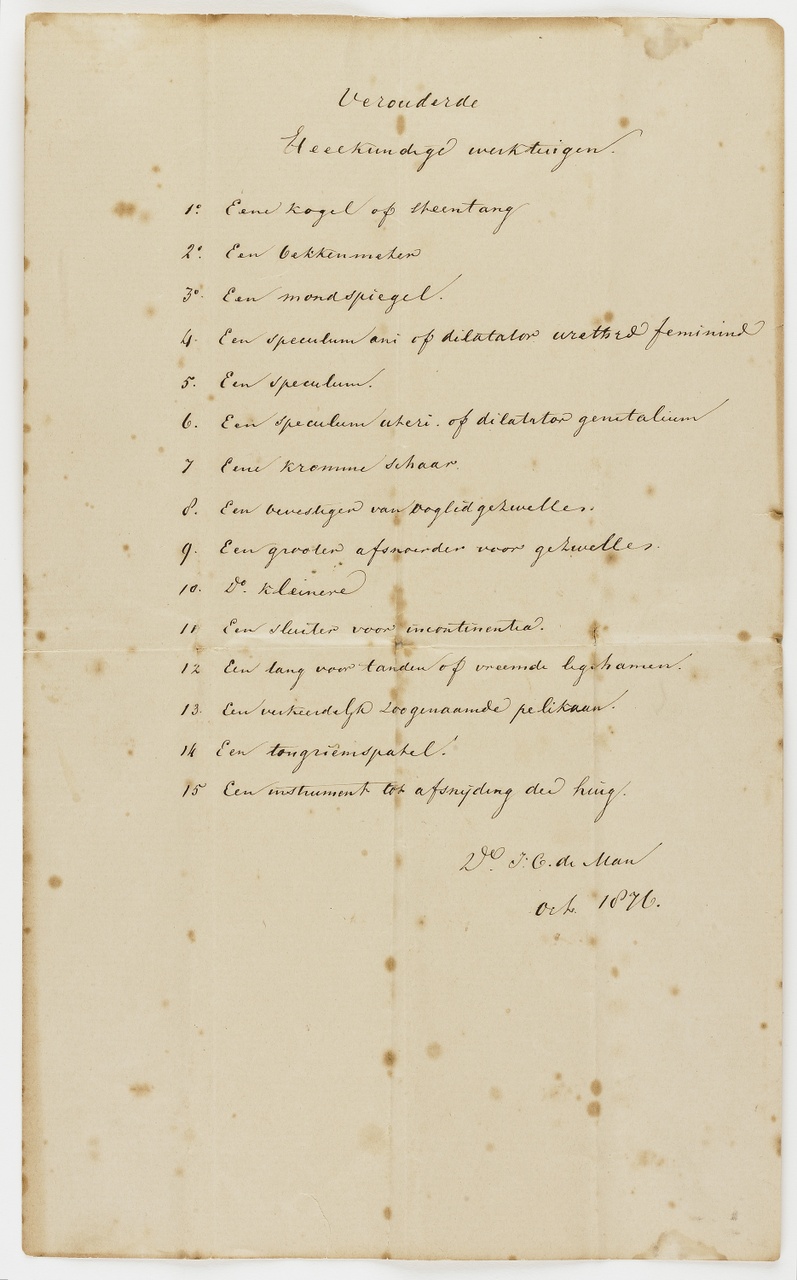 Verouderde
Heelkundige werktuigen.
1º Eene kogel of steentang
2º. Een bekkenmeter
3º. Een mondspiegel.
4. Een speculum ani of dilatator urethrae feminina
5. Een speculum.
6. Een speculum uteri. of dilatator genitalium
7 Eene kromme schaar.
8. Een bevestiger van ooglidgezwellen.
9. Een grooter afsnoerder voor gezwellen.
10. Dº. kleinere
11 Een sluiter voor incontinentia.
12 Een tang voor tanden of vreemde ligchamen.
13. Een verkeerdelijk zoogenaamde pelikaan.
14 Een tongriemspatel.
15 Een instrument tot afsnijding der huig.
Dr. J. C. de Man
Oct. 1876.